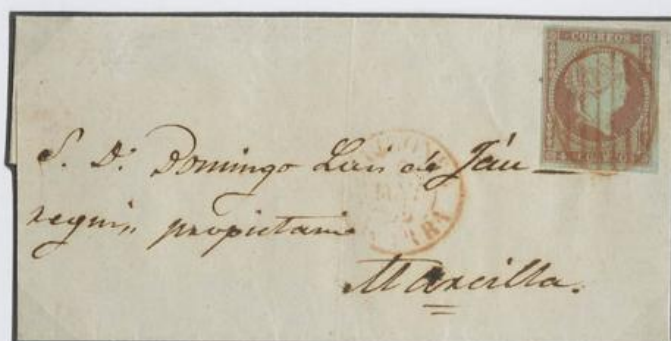 CORREOS
4 CUARTOS
S. D. Domingo Luis de Jáu-
regui, propietario
Marcilla.